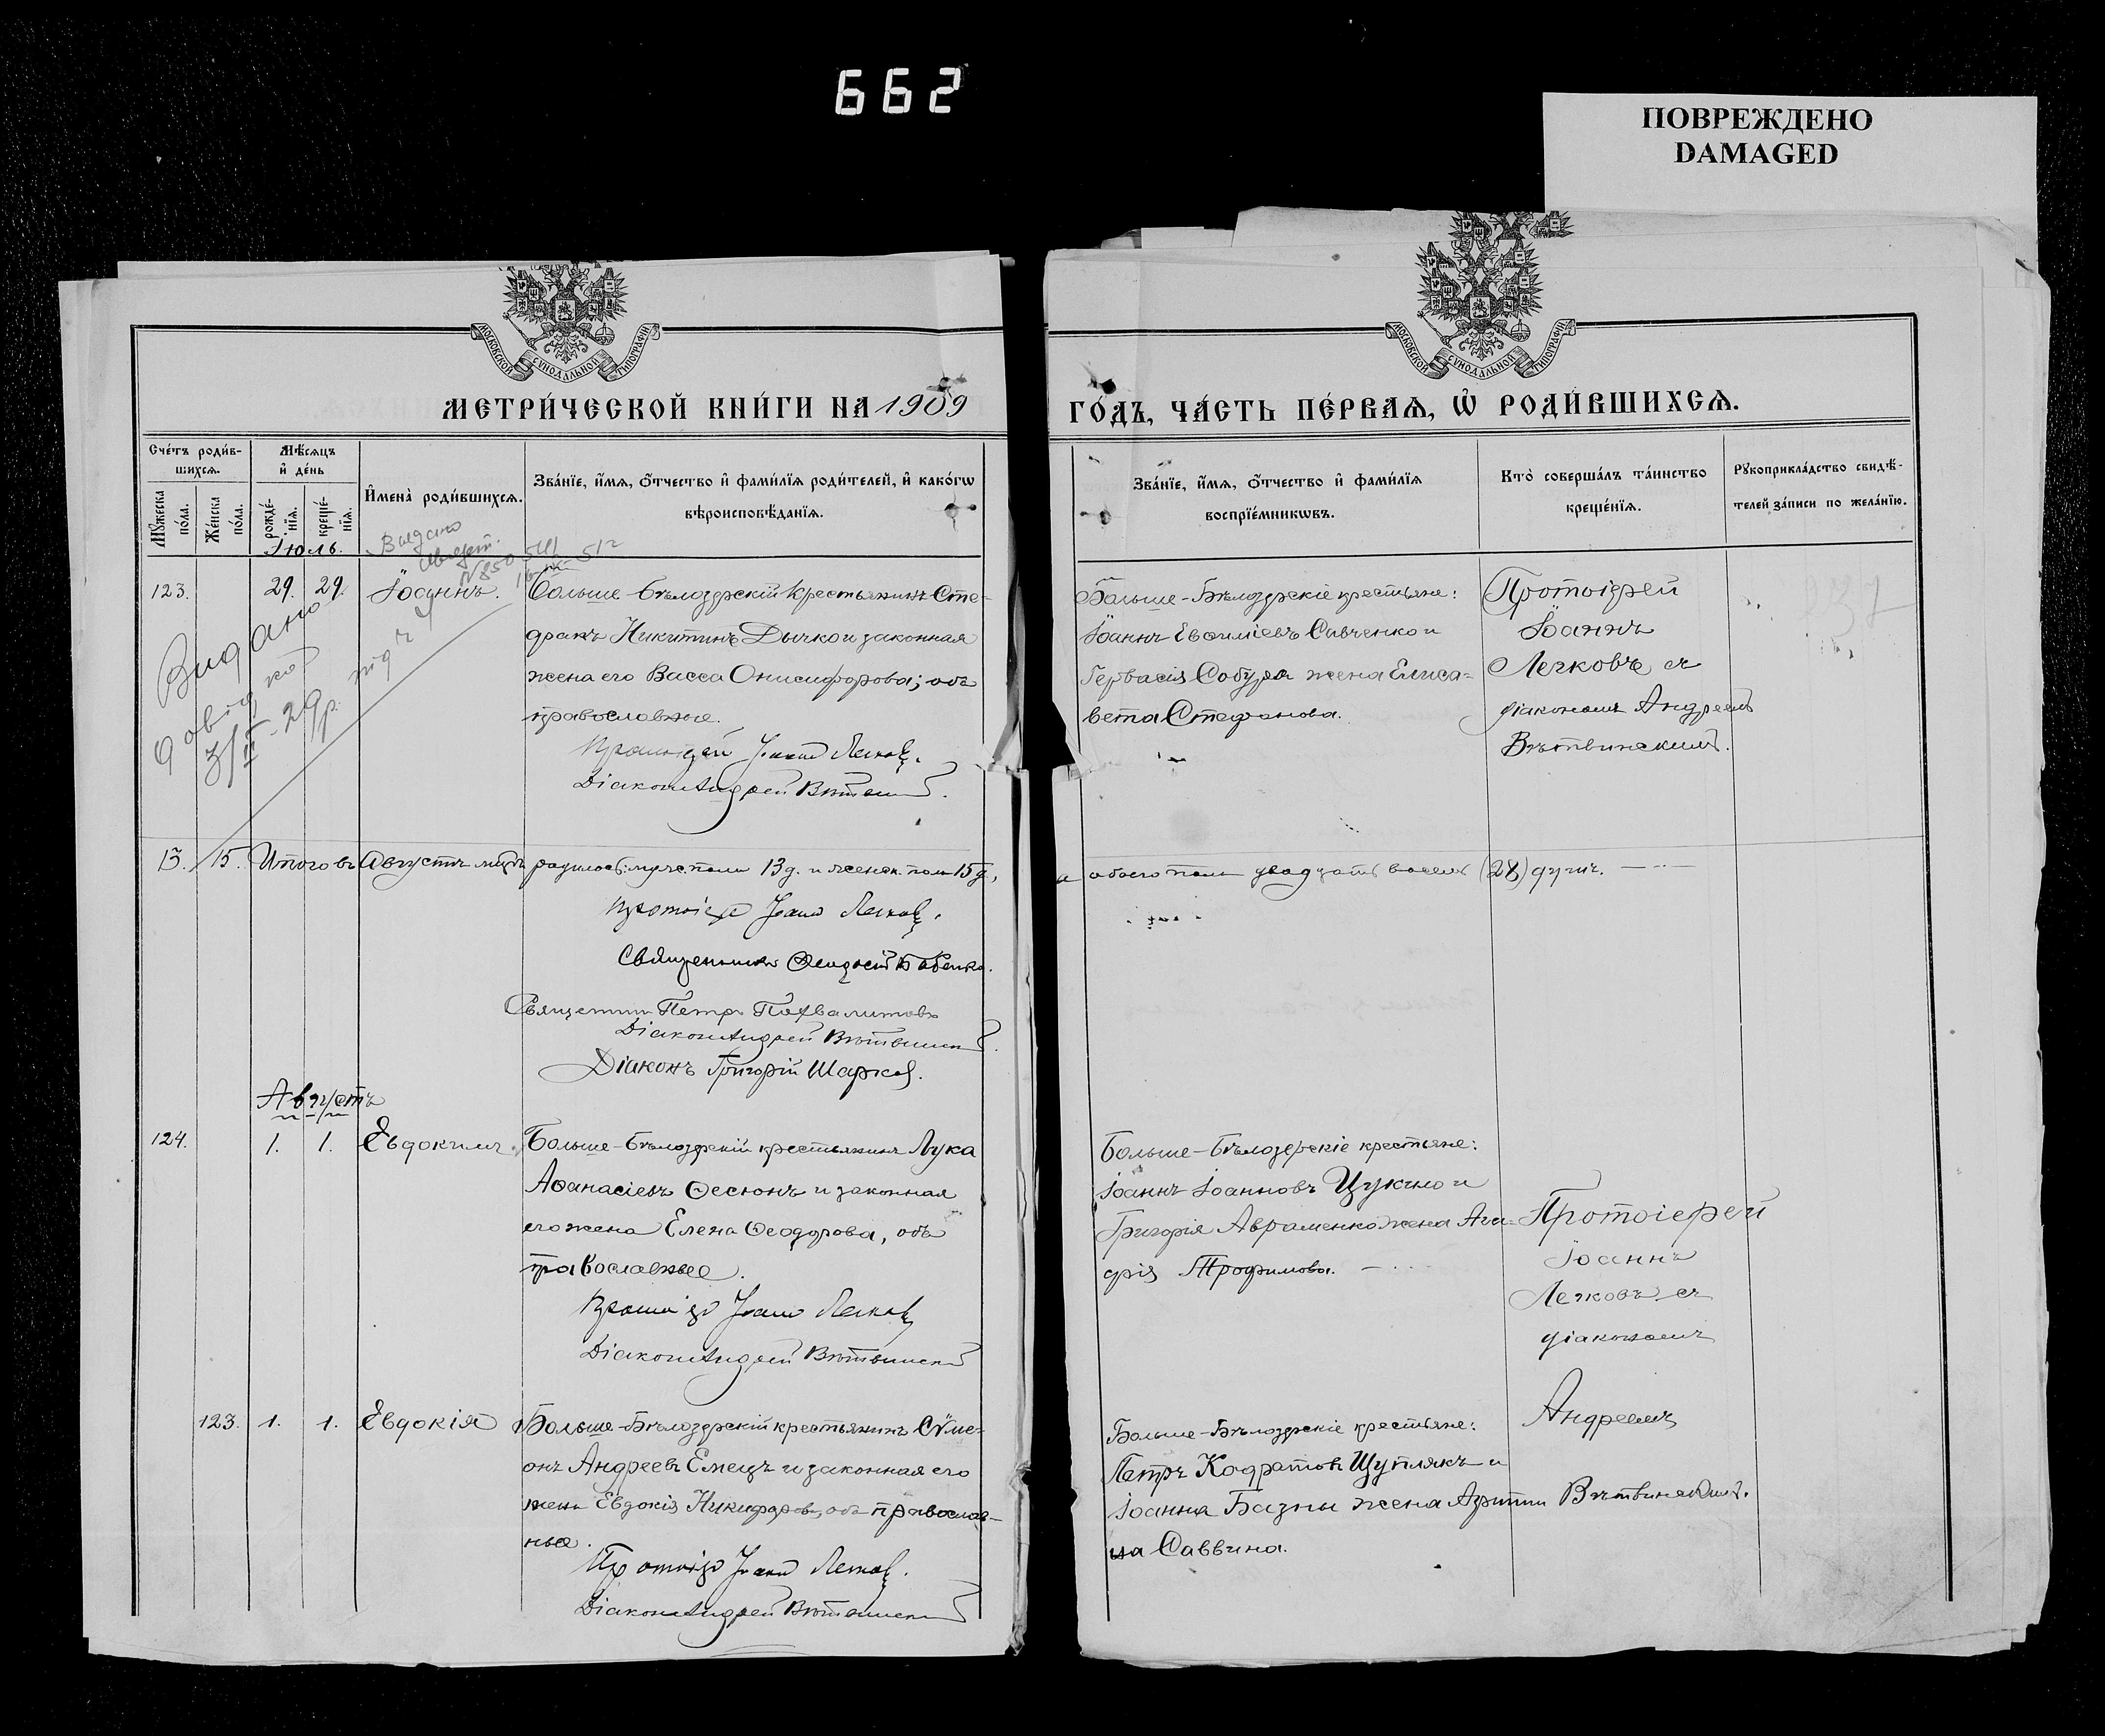 662
ПОВРЕЖДЕНО
DAMAGED
МОСКОВСКОЙ СУНОДАЛЬНОЙ ТИПОГРАФІИ
МОСКОВСКОЙ СУНОДАЛЬНОЙ ТИПОГРАФІИ
МЕТРИ́ЧЕСКОЙ КНИ́ГИ НА 1909
ГО́ДЪ, ЧА́СТЬ ПЕ́РВАѦ, Ѡ РОДИ́ВШИХСѦ.
Сче́тъ роди́в-
шихсѧ.
Мѣ́сѧцъ
и҆ де́нь
Мꙋ́жеска
по́ла.
Же́нска
по́ла.
рожде́-
нїѧ.
креще́-
нїѧ.
И҆мена̀ роди́вшихсѧ.
Зва́нїе, и҆́мѧ, ѻ҆́тчество и҆ фами́лїѧ роди́телей, и҆ како́гѡ
вѣроисповѣ́данїѧ.
Зва́нїе, и҆́мѧ, ѻ҆́тчество и҆ фами́лїѧ
воспрїе́мникѡвъ.
Кто̀ соверша́лъ та́инство
креще́нїѧ.
Рꙋкоприкла́дство свидѣ́-
телей за́писи по жела́нїю.
Іюль.
Выдано
123. 29. 29. Іоаннъ. Больше-Бѣлозерскій крестьянинъ Сте-
фанъ Никитинъ Дычко и законная
жена его Васса Онисифорова; оба
православные.
Протоіерей Іоаннъ Легковъ.
Діаконъ Андрей Вѣтвинскій.
Видано
довідку
Больше-Бѣлозерскіе крестьяне:
Іоаннъ Евѳиміевъ Савченко и
Гервасія Собура жена Елиса-
вета Стефанова.
Протоіерей
Іоаннъ
Легковъ съ
діакономъ Андреемъ
Вѣтвинскимъ.
13. 15. Итого въ Августѣ мцѣ родилось: муж. пола 13 д. и женск. пола 15 д.,
а обоего пола двадцать восемь (28) душъ.
Протоіерей Іоаннъ Легковъ.
Священникъ Ѳеодосій Бабенко.
Священникъ Петръ Похвалитовъ
Діаконъ Андрей Вѣтвинскій.
Діаконъ Григорій Шарковъ.
Августъ
124. 1. 1. Евдокимъ. Больше-Бѣлозерскій крестьянинъ Лука
Аѳанасіевъ Ѳесюнъ и законная
его жена Елена Ѳеодорова, оба
православные.
Протоіерей Іоаннъ Легковъ
Діаконъ Андрей Вѣтвинскій
Больше-Бѣлозерскіе крестьяне:
Іоаннъ Іоанновъ Цукило и
Григорія Авраменко жена Ага-
фія Трофимова.
Протоіерей
Іоаннъ
Легковъ съ
діакономъ
Андреемъ
Вѣтвинскимъ.
123. 1. 1. Евдокія Больше-Бѣлозерскій крестьянинъ Сѵме-
онъ Андреевъ Емецъ и законная его
жена Евдокія Никифорова, оба православ-
ные.
Протоіерей Іоаннъ Легковъ.
Діаконъ Андрей Вѣтвинскій
Больше-Бѣлозерскіе крестьяне:
Петръ Кодратовъ Щуплякъ и
Іоанна Базны жена
Саввина.